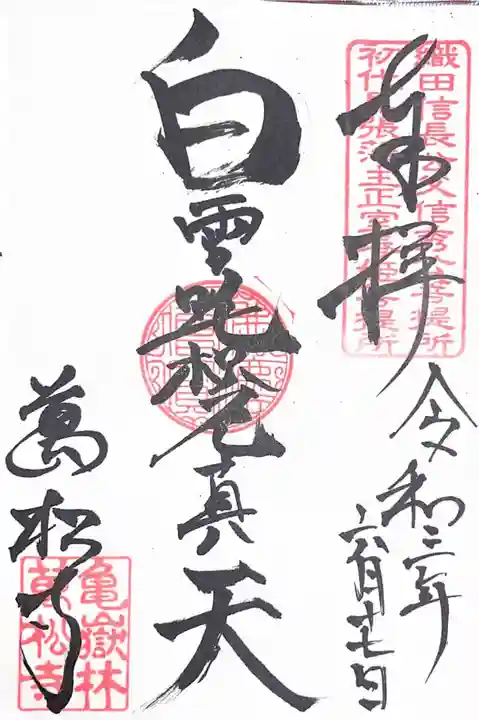 奉拝
織田信長公父信秀公菩提所
初代尾張藩主正室春姫菩提所
令和二年
六月十七日
白雪吒枳尼真天
萬松寺
亀嶽林
萬松寺